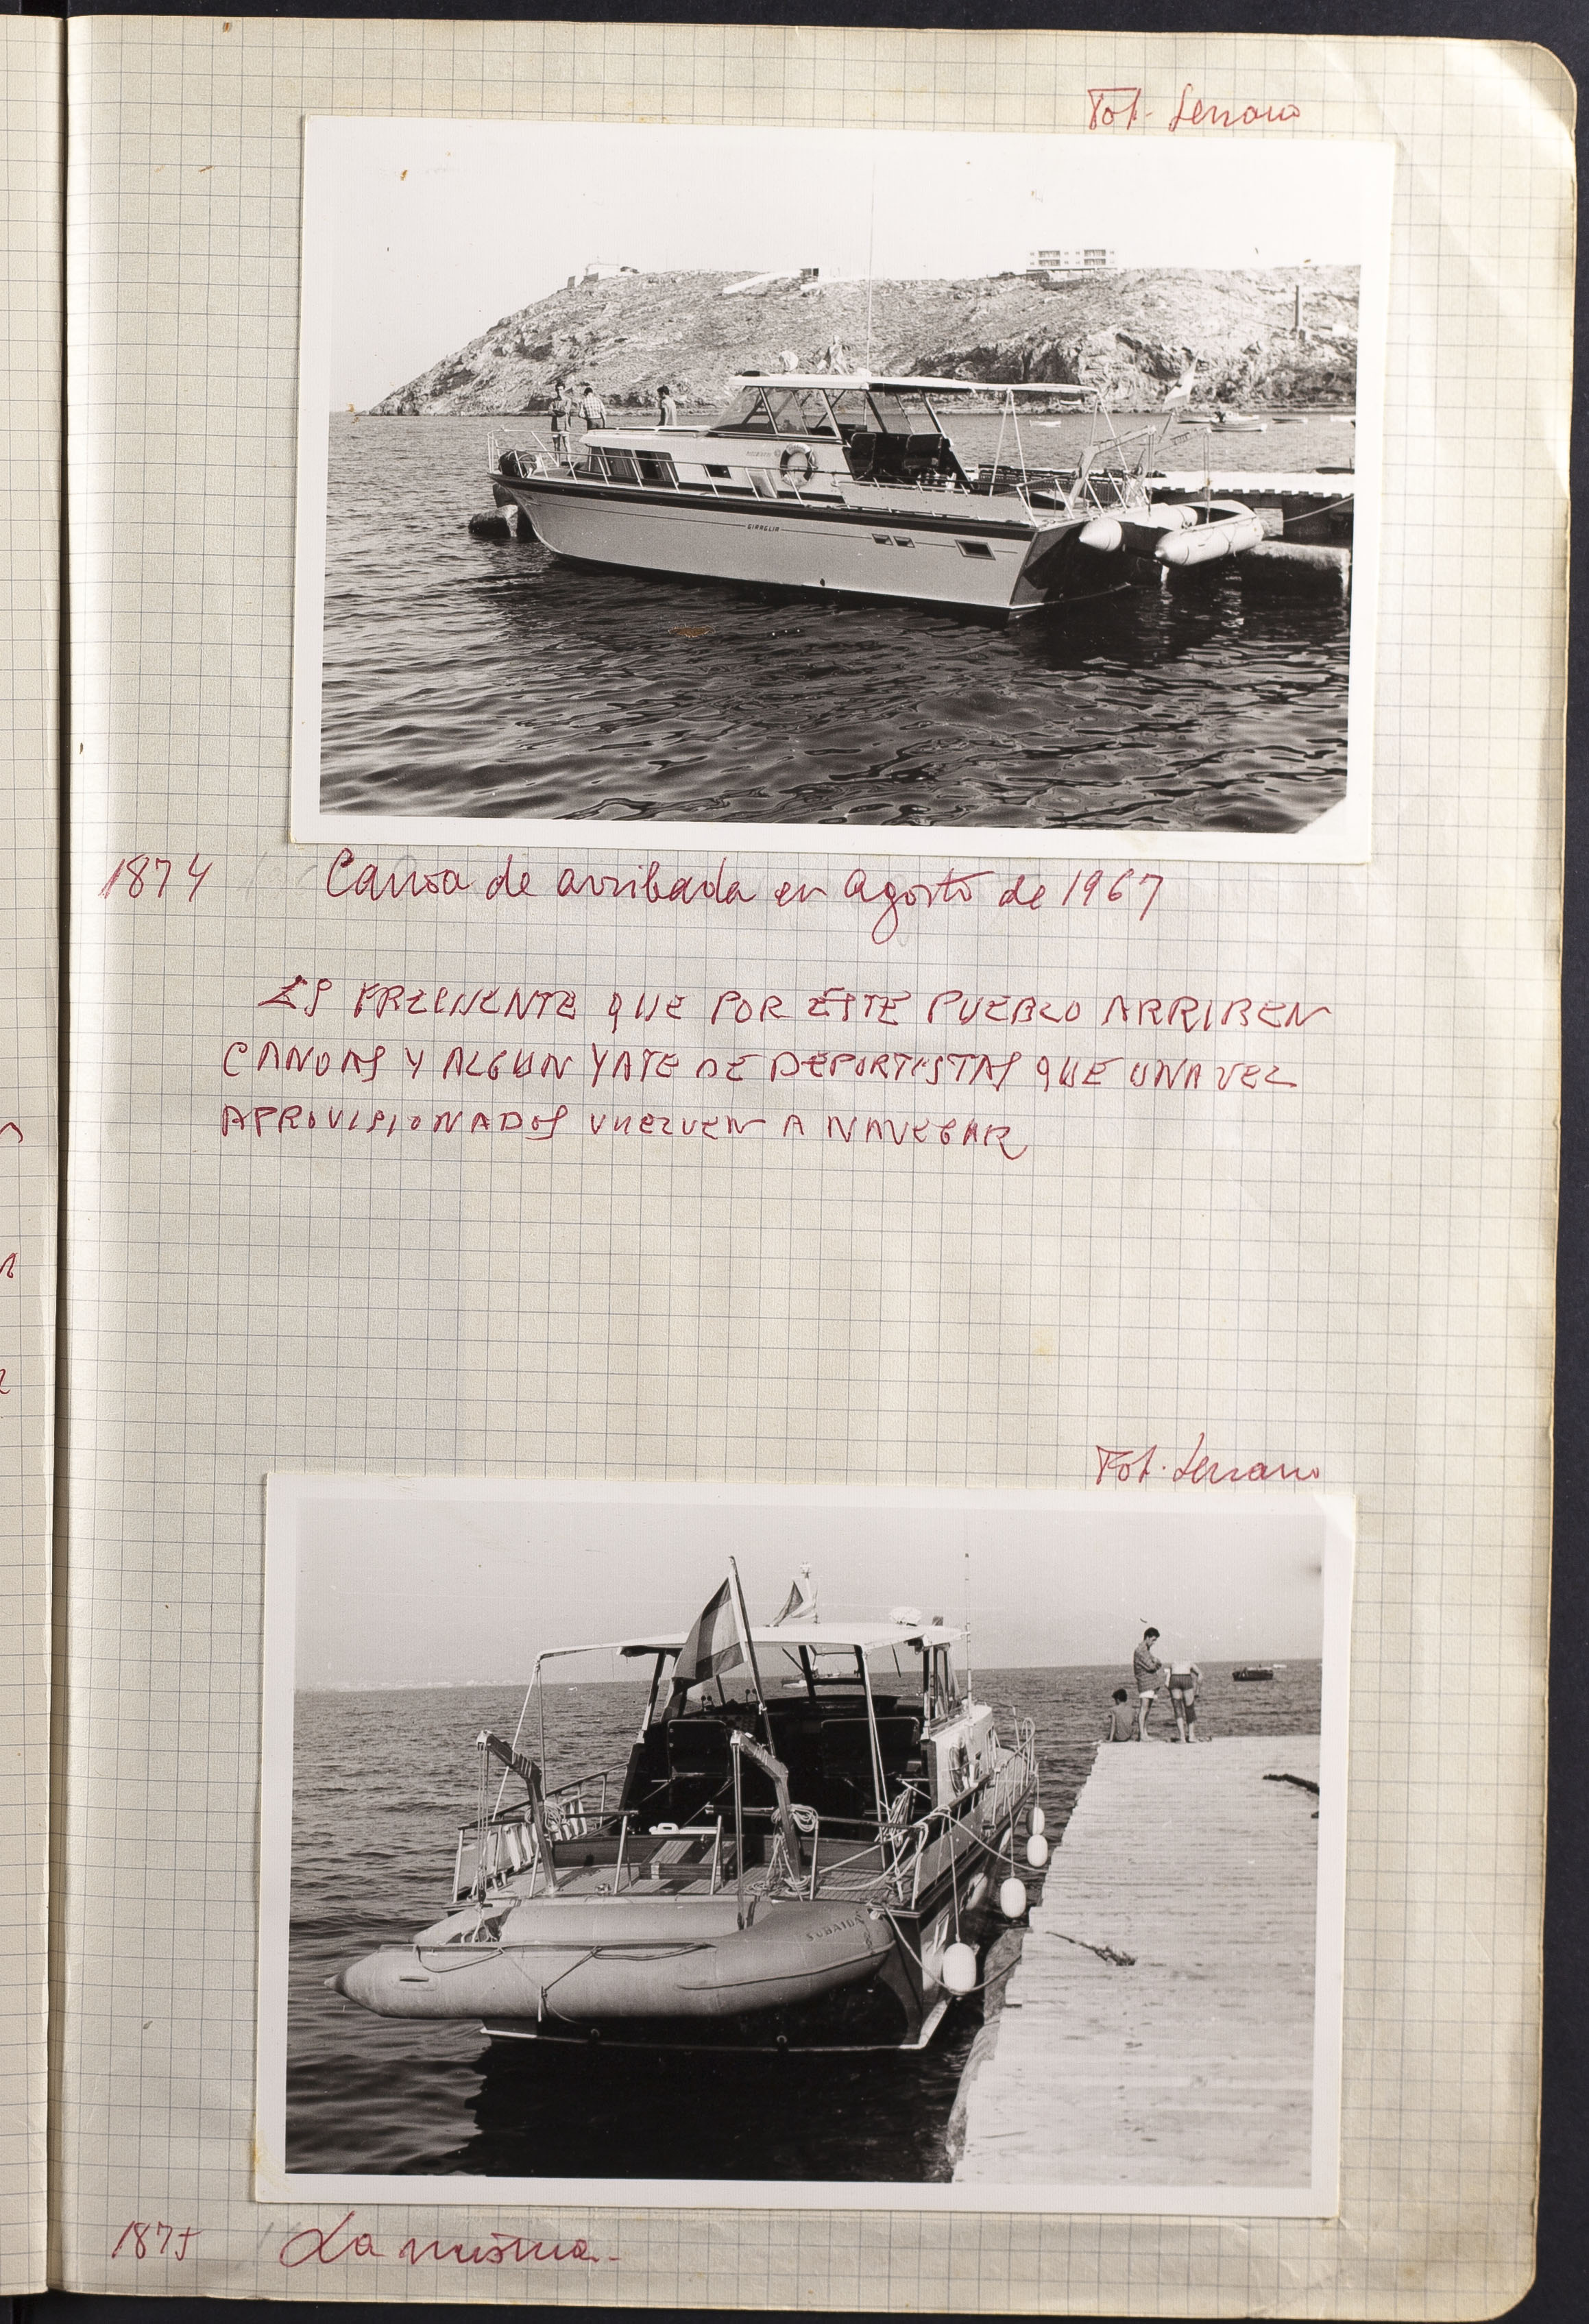 Fot- Serrano
GIRAGLIA
1874 Canoa de arribada en Agosto de 1967
ES FRECUENTE QUE POR ESTE PUEBLO ARRIBEN
CANOAS Y ALGUN YATE DE DEPORTISTAS QUE UNA VEZ
APROVISIONADOS VUELVEN A NAVEGAR
Fot. Serrano
SUBAIDA
1875 La misma.-